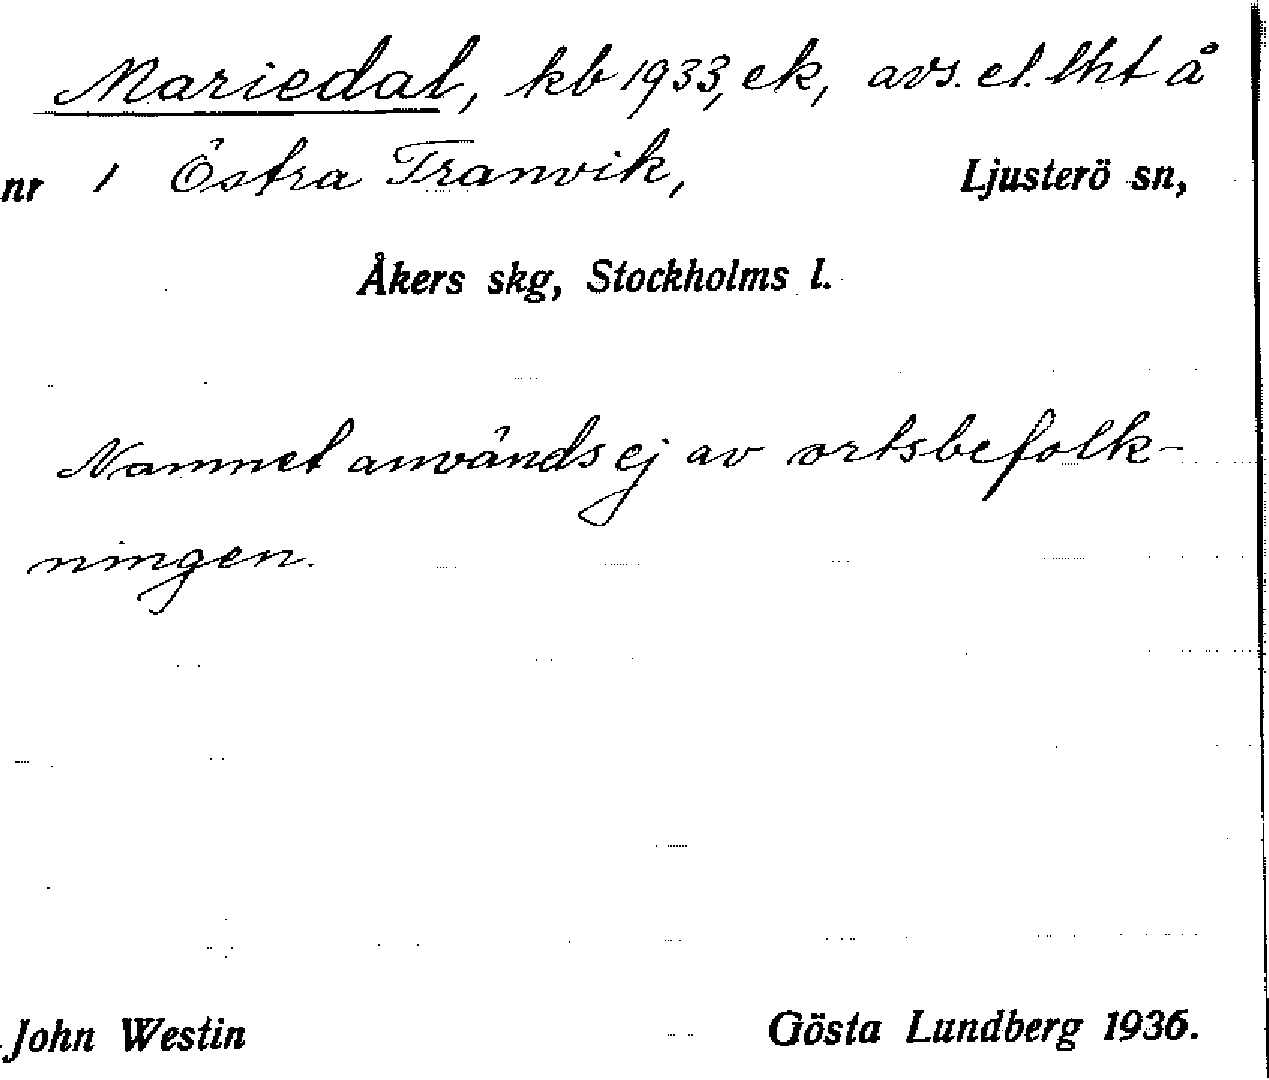 Mariedal, kb 1933, ek, avs. el. lht å
nr 1 Östra Tranvik, Ljusterö sn,
Åkers skg, Stockholms l.
Namnet används ej av ortsbefolk-
ningen.
John Westin Gösta Lundberg 1936.